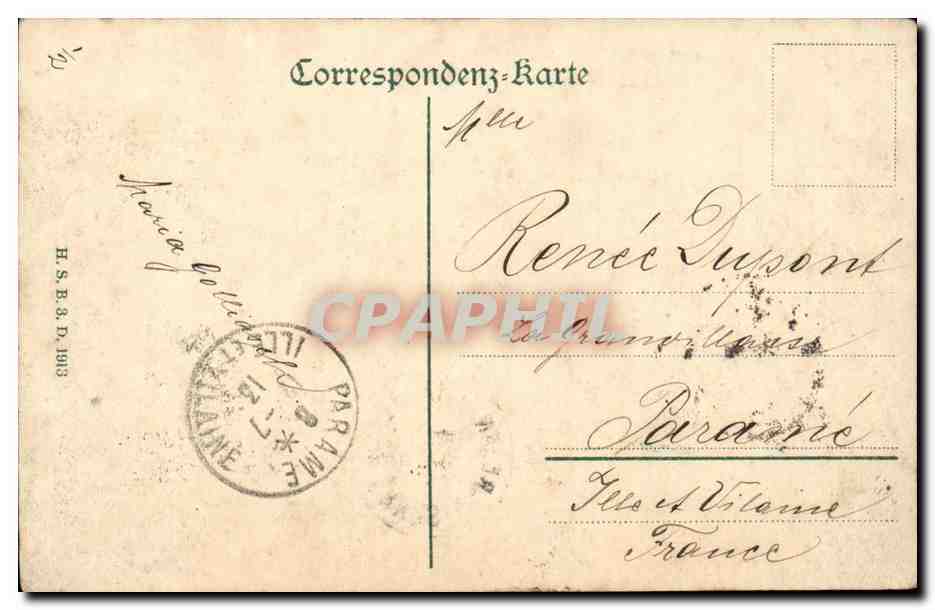 1/2
Correspondenz-Karte
Mlle
Renée Dupont
La Granvillaise
Paramé
Ille et Vilaine
France
Maria
H. S. B. 3. D. 1913
PARAMÉ
ILLE ET VILAINE
8 * 7
13
CPAPHIL